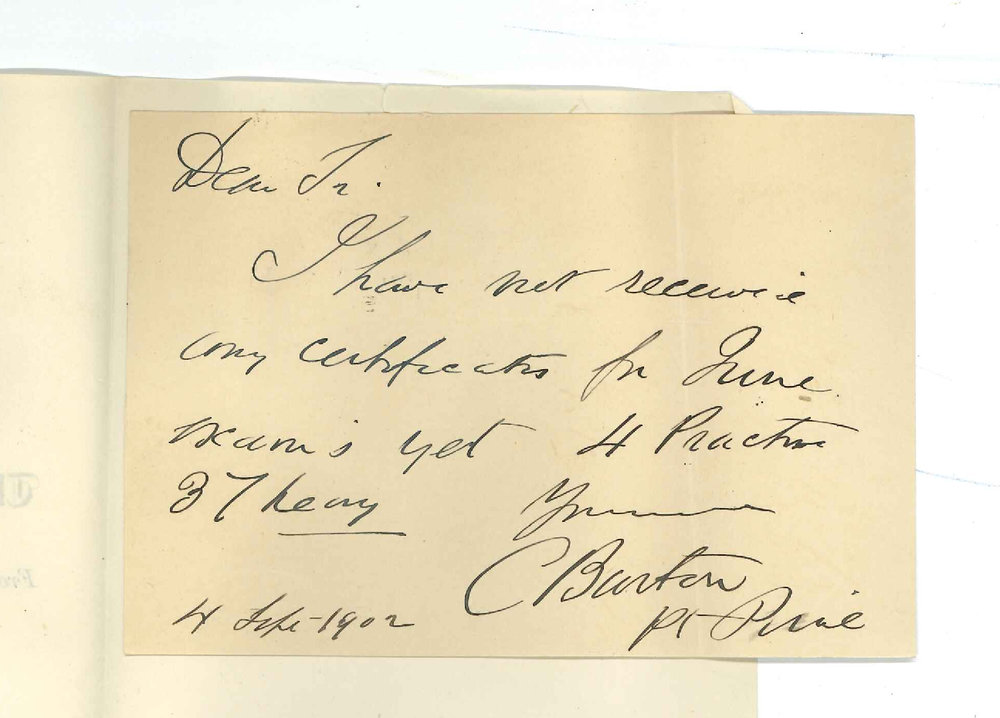 Dear Sr.
I have not receive
any certificates for June
exams yet 4 Practice
3 Theory
Yours
C Burton
Pt Pirie
4 Sept 1902